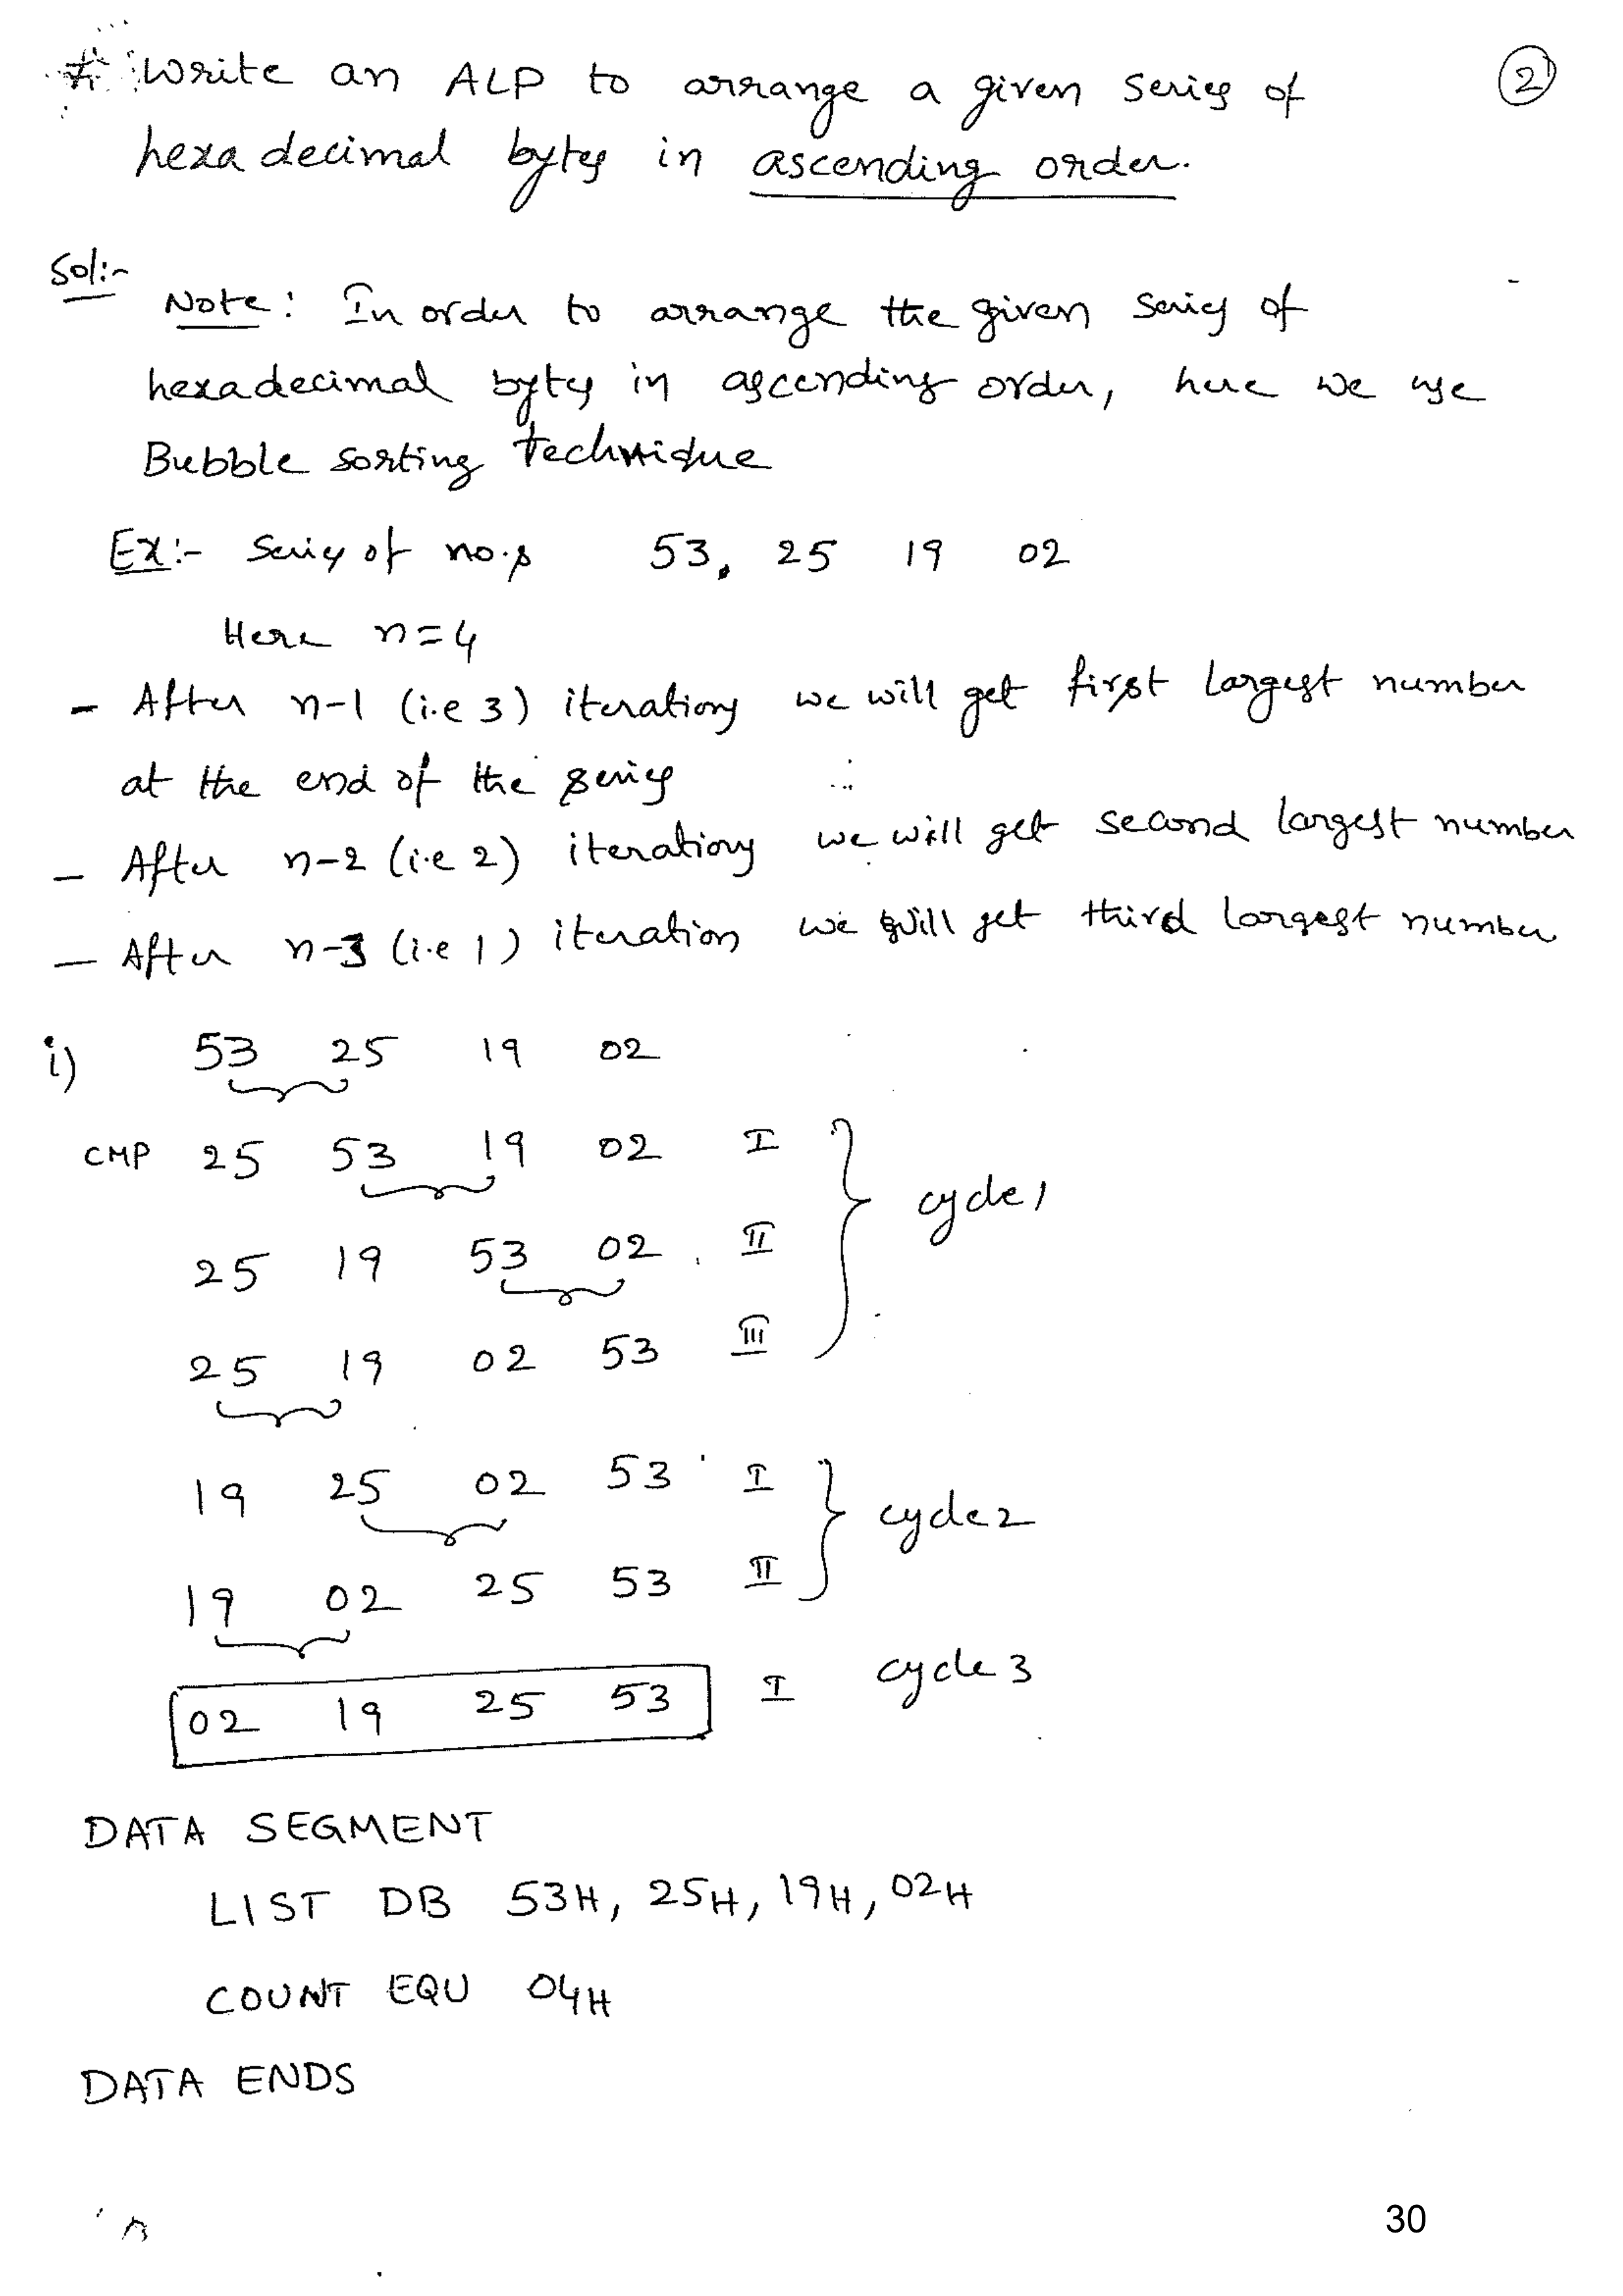 * Write an ALP to arrange a given series of
②
hexadecimal bytes in ascending order.
Sol:-
Note: In order to arrange the given series of
hexadecimal bytes in ascending order, here we use
Bubble sorting technique
Ex:- Series of no.s 53, 25 19 02
Here n=4
- After n-1 (i.e 3) iterations we will get first largest number
at the end of the series
- After n-2 (i.e 2) iterations we will get second largest number
- After n-3 (i.e 1) iteration we will get third largest number
i) 53 25 19 02
CMP 25 53 19 02 I
cycle 1
25 19 53 02 II
25 19 02 53 III
19 25 02 53 I
cycle 2
19 02 25 53 II
02 19 25 53 I cycle 3
DATA SEGMENT
LIST DB 53H, 25H, 19H, 02H
COUNT EQU 04H
DATA ENDS
30